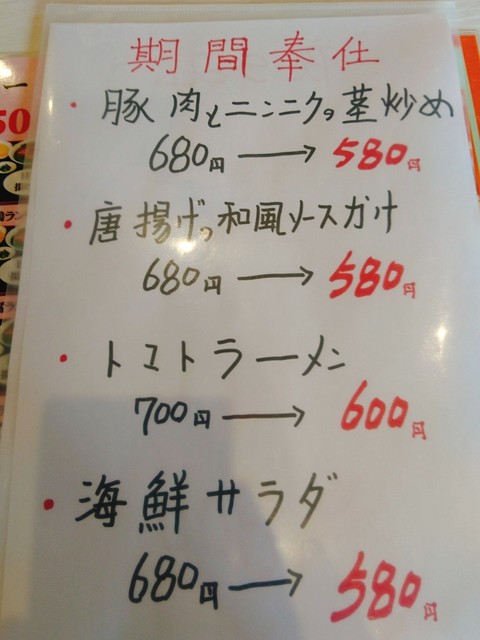 期間奉仕
・豚肉とニンニクの茎炒め
680円→580円
・唐揚げの和風ソースガけ
680円→580円
・トマトラーメン
700円→600円
・海鮮サラダ
680円→580円
50